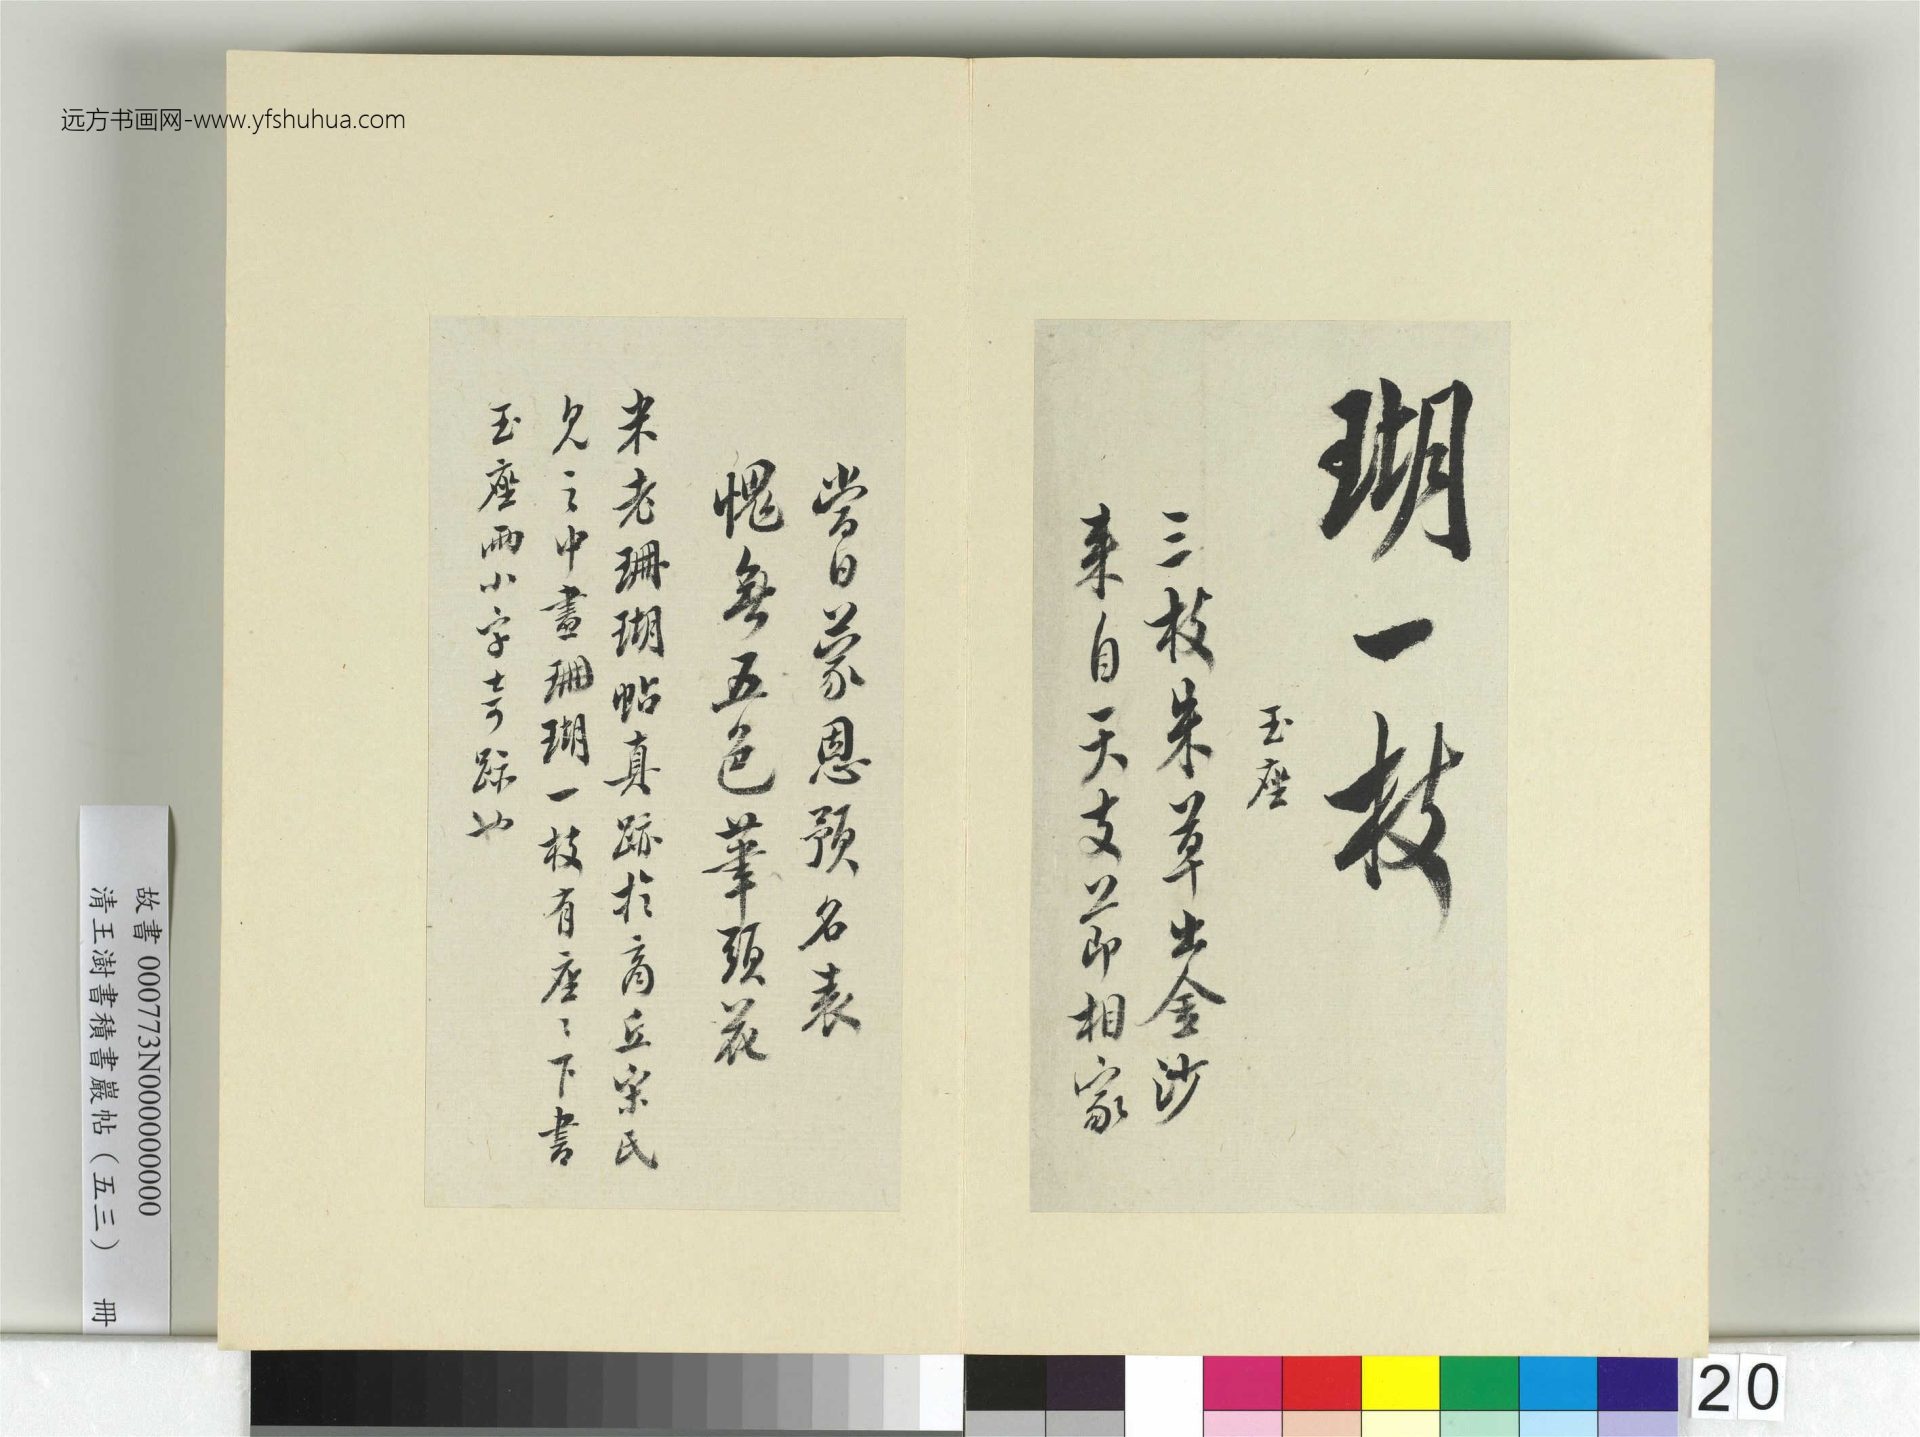 远方书画网-www.yfshuhua.com
瑚一枝
玉座
三枝朱草出金沙
来自天支節相家
當日蒙恩預名表
愧無五色筆頭花
米老珊瑚帖真跡於商丘宋氏
見之中畫珊瑚一枝有座〻下書
玉座兩小字奇跡也
故書 000773N000000000
清王澍書積書巖帖（五三） 冊
20